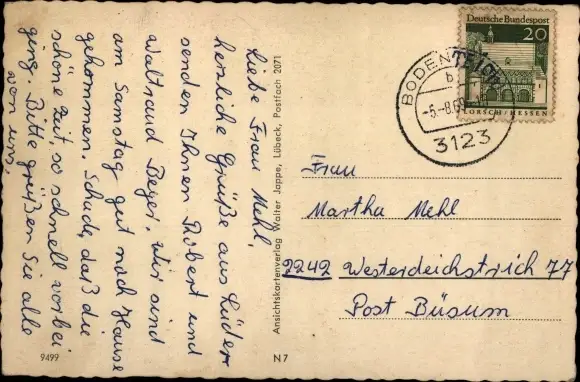 Liebe Frau Mehl,
herzliche Grüße aus Lüder
senden Ihnen Robert und
Waltraud Beyer. Wir sind
am Samstag gut nach Hause
gekommen. Schade, daß die
schöne Zeit, so schnell vorbei
ging. Bitte grüßen Sie alle
von uns.
9499
Ansichtskartenverlag Walter Jappe, Lübeck, Postfach 2071
N 7
Deutsche Bundespost
20
LORSCH/HESSEN
BODENTEICH
b
3123
Frau
Martha Mehl
2242 Westerdeichstrich 77
Post Büsum